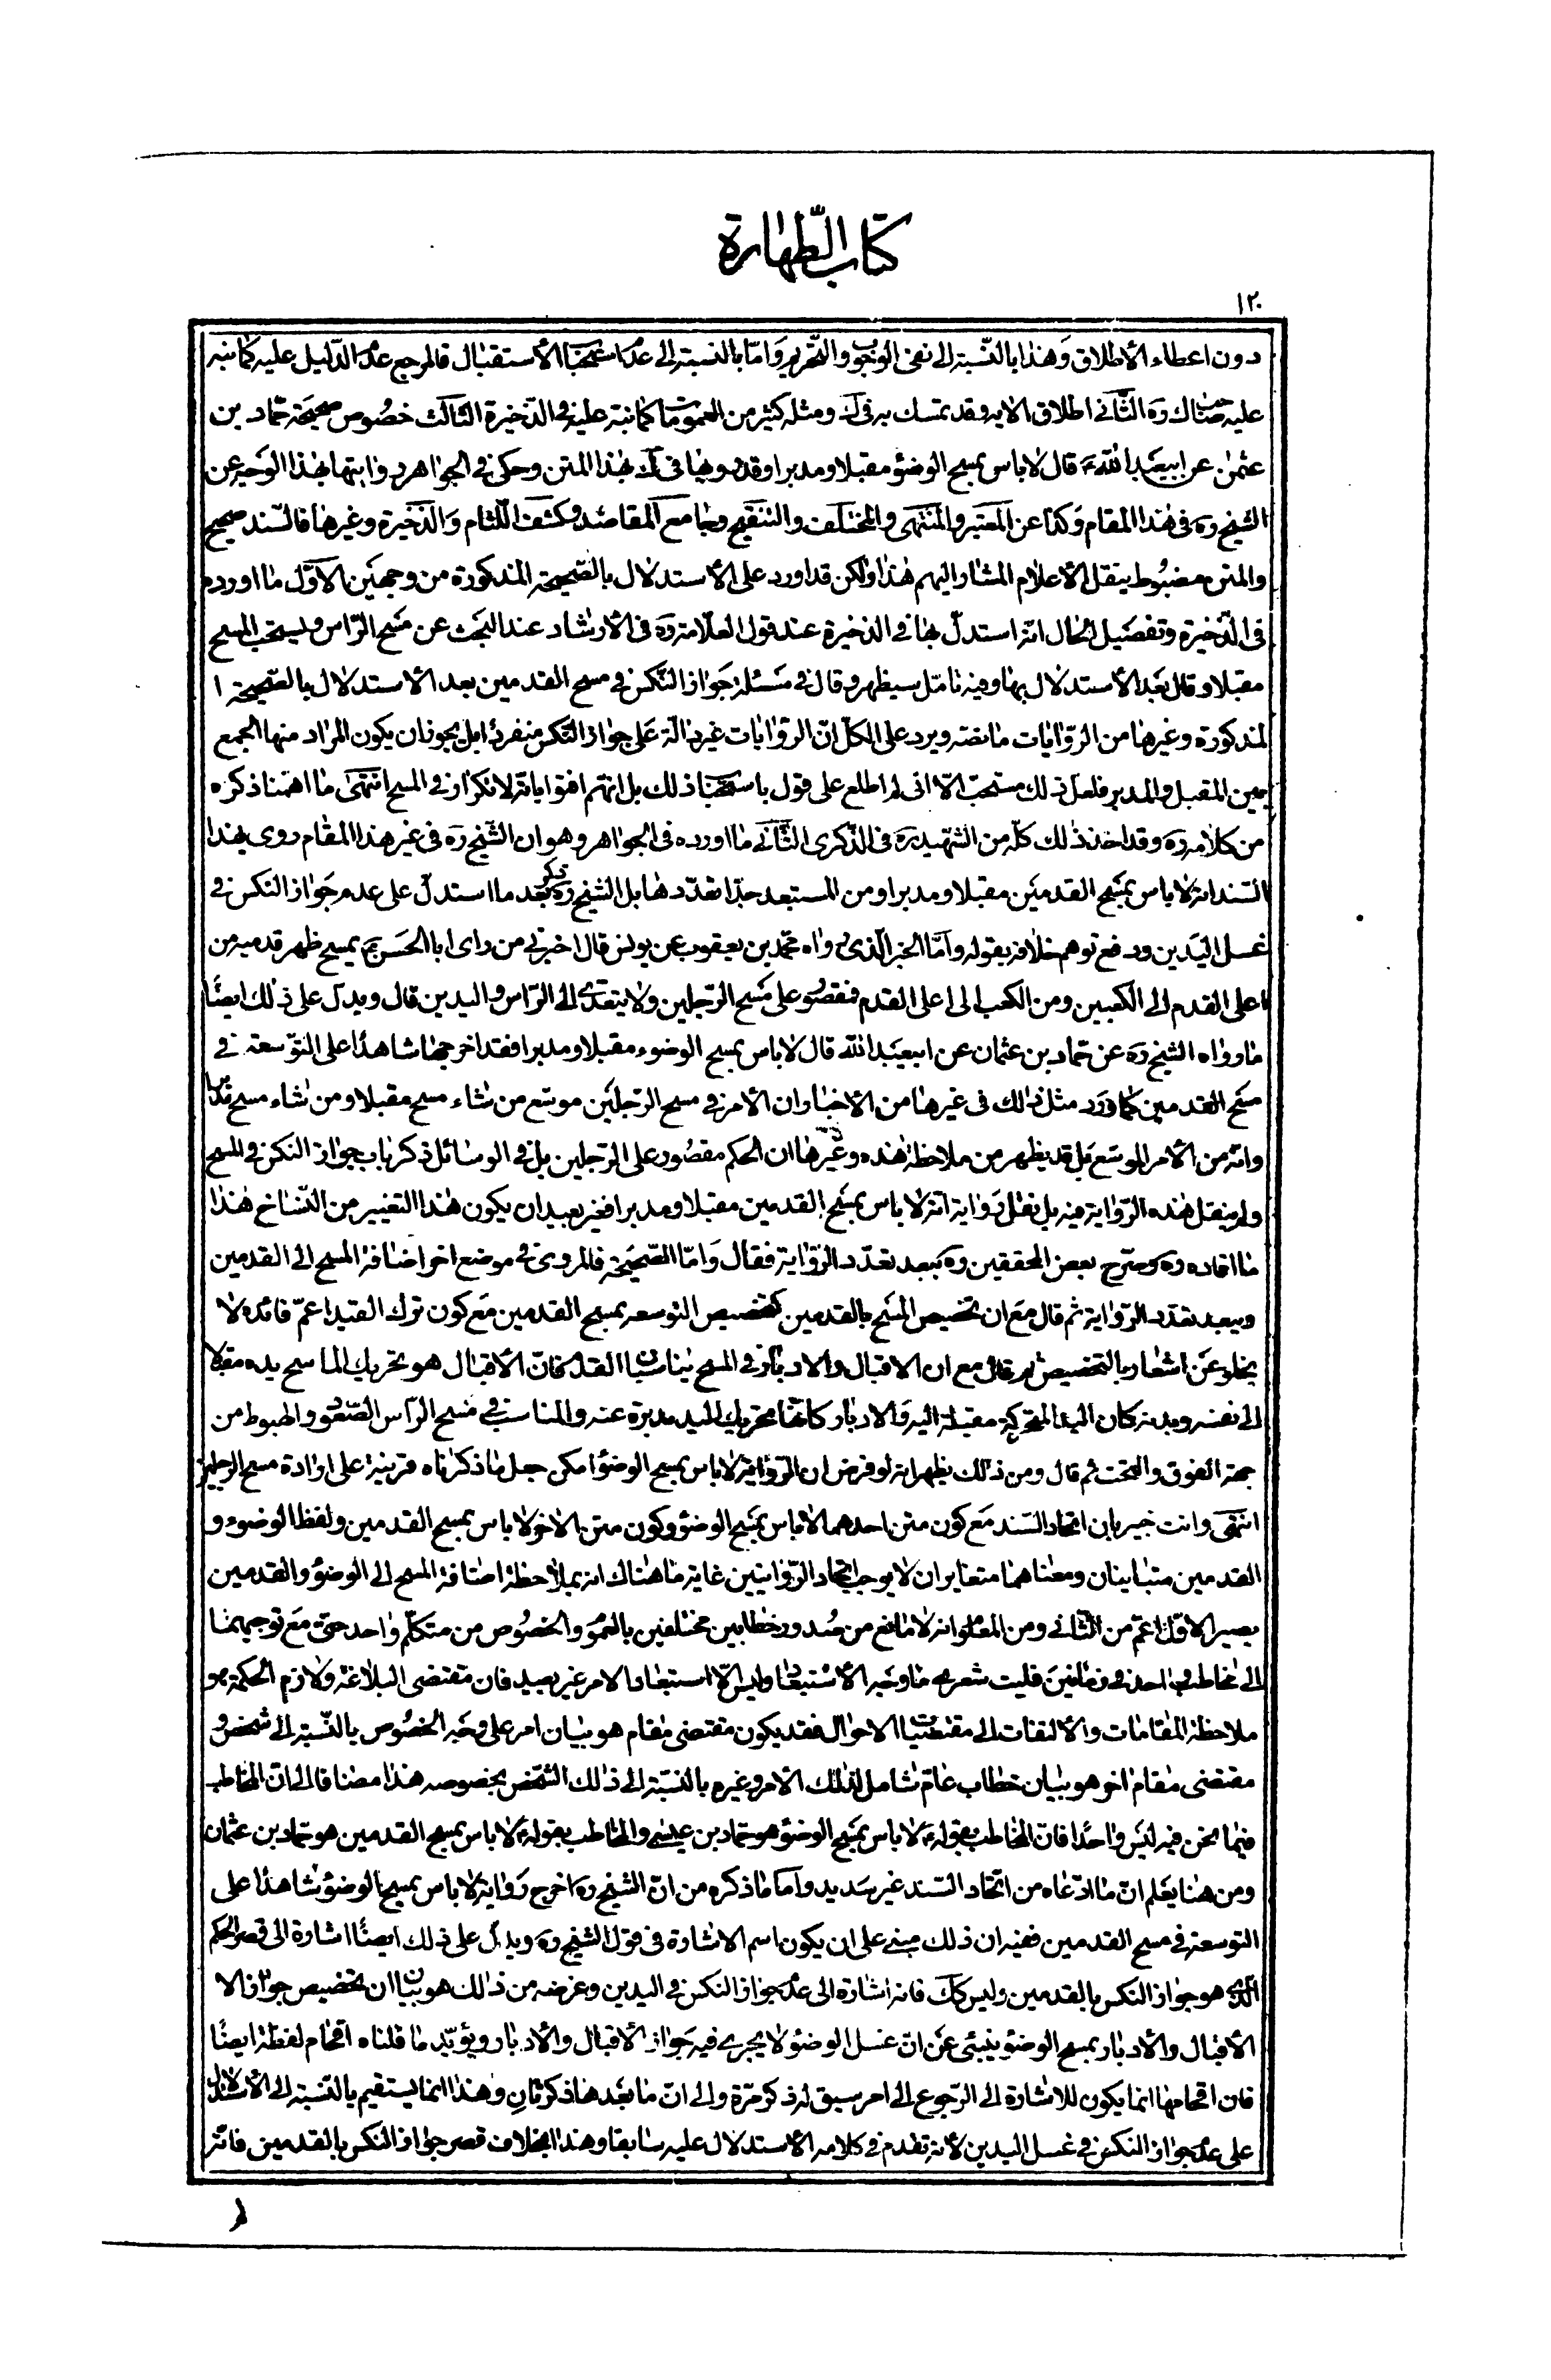 كتاب الطهارة
١٢٠
دون اعطاء الأطلاق وهذا بالنسبة الى نفى الوجوب والتحريم وامّا بالنسبة الى عدم استحباب الأستقبال فالمرجع عدم الدّليل عليه كما نبه
عليه صاحب ك ره الثّانى اطلاق الايه وقد تمسك به فى ك ومثله كثير من العمومات كما نبّه عليه فى الذّخيرة الثالث خصوص صحيحة حماد بن
عثمن عن ابيعبد الله ع قال لا باس بمسح الوضوء مقبلا ومدبرا وقد رويها فى ك بهذا المتن وحكى فى الجواهر روايتها بهذا الوجه عن
الشيخ ره فى هذا المقام وكذا عن المعتبر والمنتهى والمختلف والتنقيح وجامع المقاصد وكشف اللّثام والذّخيرة وغيرها فالسّند صحيح
والمتن مضبوط بنقل الأعلام المشار اليهم هذا ولكن قد اورد على الأستدلال بالصّحيحة المذكورة من وجهين الأوّل ما اورده
فى الذّخيرة وتفصيل الحال انّه استدلّ بها فى الذخيرة عند قول العلّامة ره فى الأرشاد عند البحث عن مسح الرّاس ويستحب المسح
مقبلا وقال بعد الأستدلال بها وفيه تامّل سيظهر وقال فى مسئلة جواز النّكس فى مسح القدمين بعد الأستدلال بالصّحيحة ا
لمذكورة وغيرها من الرّوايات ما نصّه ويرد على الكلّ انّ الروايات غير دالّة على جواز النّكس منفردا بل يجوز ان يكون المراد منها الجمع
بين المقبل والمدبر فلعلّ ذلك مستحبّ الّا انى لم اطلع على قول باستحباب ذلك بل انّهم افتوا بانّه لا تكرار فى المسح انتهى ما اهمّنا ذكره
من كلامه ره وقد اخذ ذلك كلّه من الشّهيد ره فى الذّكرى الثّانى ما اورده فى الجواهر وهو ان الشّيخ ره فى غير هذا المقام روى بهذا
السّند انّه لا باس بمسح القدمين مقبلا ومدبرا ومن المستبعد جدّا تعدّدها بل الشيخ ره ذكر بعد ما استدلّ على عدم جواز النكس فى
غسل اليدين ودفع توهم خلافه بقوله وامّا الخبر الّذى رواه محمّد بن يعقوب عن يونس قال اخبرنى من راى ابا الحسن ع يمسح ظهر قدميه من
اعلى القدم الى الكعبين ومن الكعب الى اعلى القدم فمقصور على مسح الرّجلين ولا يتعدّى الى الرّاس واليدين قال ويدلّ على ذلك ايضًا
ما رواه الشيخ ره عن حماد بن عثمان عن ابيعبد الله قال لا باس بمسح الوضوء مقبلا ومدبرا فقد اخرجها شاهدًا على التوّسعة فى
مسح القدمين كما ورد مثل ذلك فى غيرها من الأخبار ان الأمر فى مسح الرّجلين موسّع من شاء مسح مقبلا ومن شاء مسح مدبرا
وانّه من الأمر الموسّع بل قد يظهر من ملاحظة هذه وغيرها ان الحكم مقصور على الرّجلين بل فى الوسائل ذكر باب جواز النكس فى المسح
ولم ينقل هذه الرّواية فيه بل نقل رواية انّه لا باس بمسح القدمين مقبلا ومدبرا فغير بعيد ان يكون هذا التغيير من النّسّاخ هذا
ما افاده ره وصرّح بعض المحققين ره ببعد تعدّد الرّواية فقال وامّا الصّحيحة فالمروى فى موضع اخر اضافة المسح الى القدمين
ويبعد تعدّد الرّواية ثم قال مع ان تخصيص المسح بالقدمين كتخصيص التوسعه بمسح القدمين مع كون ترك القيد اعمّ فائده لا
يخلو عن اشعار بالتخصيص ثم قال مع ان الاقبال والادبار فى المسح يناسبان القدم فانّ الأقبال هو تحريك الماسح يده مقبلا
الى نفسه وبدنه كان اليد المتحركة مقبلة اليه والادبار كانّها تحريك لليد مدبرة عنه والمناسب فى مسح الرّاس الصّعود والهبوط من
جهة الفوق والتحت ثم قال ومن ذلك يظهر انه لو فرض ان الرّواية لا باس بمسح الوضوء امكن جعل ما ذكرناه قرينة على ارادة مسح الرجلين
انتهى وانت خبير بان اتحاد السّند مع كون متن احدهما لا باس بمسح الوضوء وكون متن الاخر لا باس بمسح القدمين ولفظا الوضوء و
القدمين متباينان ومعناهما متغايران لا يوجب اتحاد الرّوايتين غاية ما هناك انه بملاحظة اضافة المسح الى الوضوء والقدمين
يصير الاوّل اعمّ من الثّانى ومن المعلوم انه لا مانع من صدور خطابين مختلفين بالعموم والخصوص من متكلّم واحد حتى مع توجيههما
الى مخاطب واحد فى زمانين فليت شعرى ما وجه الأستبعاد وليس الّا استبعادا لامر غير بعيد فان مقتضى البلاغة ولازم الحكمة هو
ملاحظة المقامات والألتفات الى مقتضيات الاحوال فقد يكون مقتضى مقام هو بيان امر على وجه الخصوص بالنّسبة الى شخص و
مقتضى مقام اخر هو بيان خطاب عامّ شامل لذلك الأمر وغيره بالنسبة الى ذلك الشّخص بخصوصه هذا مضافا الى انّ المخاطب
فيما نحن فيه ليس واحدًا فانّ المخاطب بقوله ع لا باس بمسح الوضوء هو حماد بن عيسى والمخاطب بقوله ع لا باس بمسح القدمين هو حماد بن عثمان
ومن هنا يعلم انّ ما ادّعاه من اتّحاد السّند غير سديد وامّا ما ذكره من انّ الشيخ ره اخرج رواية لا باس بمسح الوضوء شاهدًا على
التوسعة فى مسح القدمين ففيه ان ذلك مبنى على ان يكون اسم الاشارة فى قول الشيخ ره ويدلّ على ذلك ايضًا اشارة الى قصر الحكم
الّذى هو جواز النكس بالقدمين وليس كك فانه اشارة الى عدم جواز النكس فى اليدين وغرضه من ذلك هو بيان ان تخصيص جواز الا
الأقبال والأدبار بمسح الوضوء ينبئ عن انّ غسل الوضوء لا يجرى فيه جواز الأقبال والأدبار ويؤيّد ما قلناه اقحام لفظة ايضًا
فان اقحامها انما يكون للاشارة الى الرّجوع الى امر سبق له ذكر مرّة والى انّ ما بعدها ذكر ثانٍ وهذا انما يستقيم بالنّسبة الى الأستدلال
على عدم جواز النكس فى غسل اليدين لأنه تقدم فى كلامه الأستدلال عليه سابقا وهذا بخلاف قصر جواز النكس بالقدمين فانّه